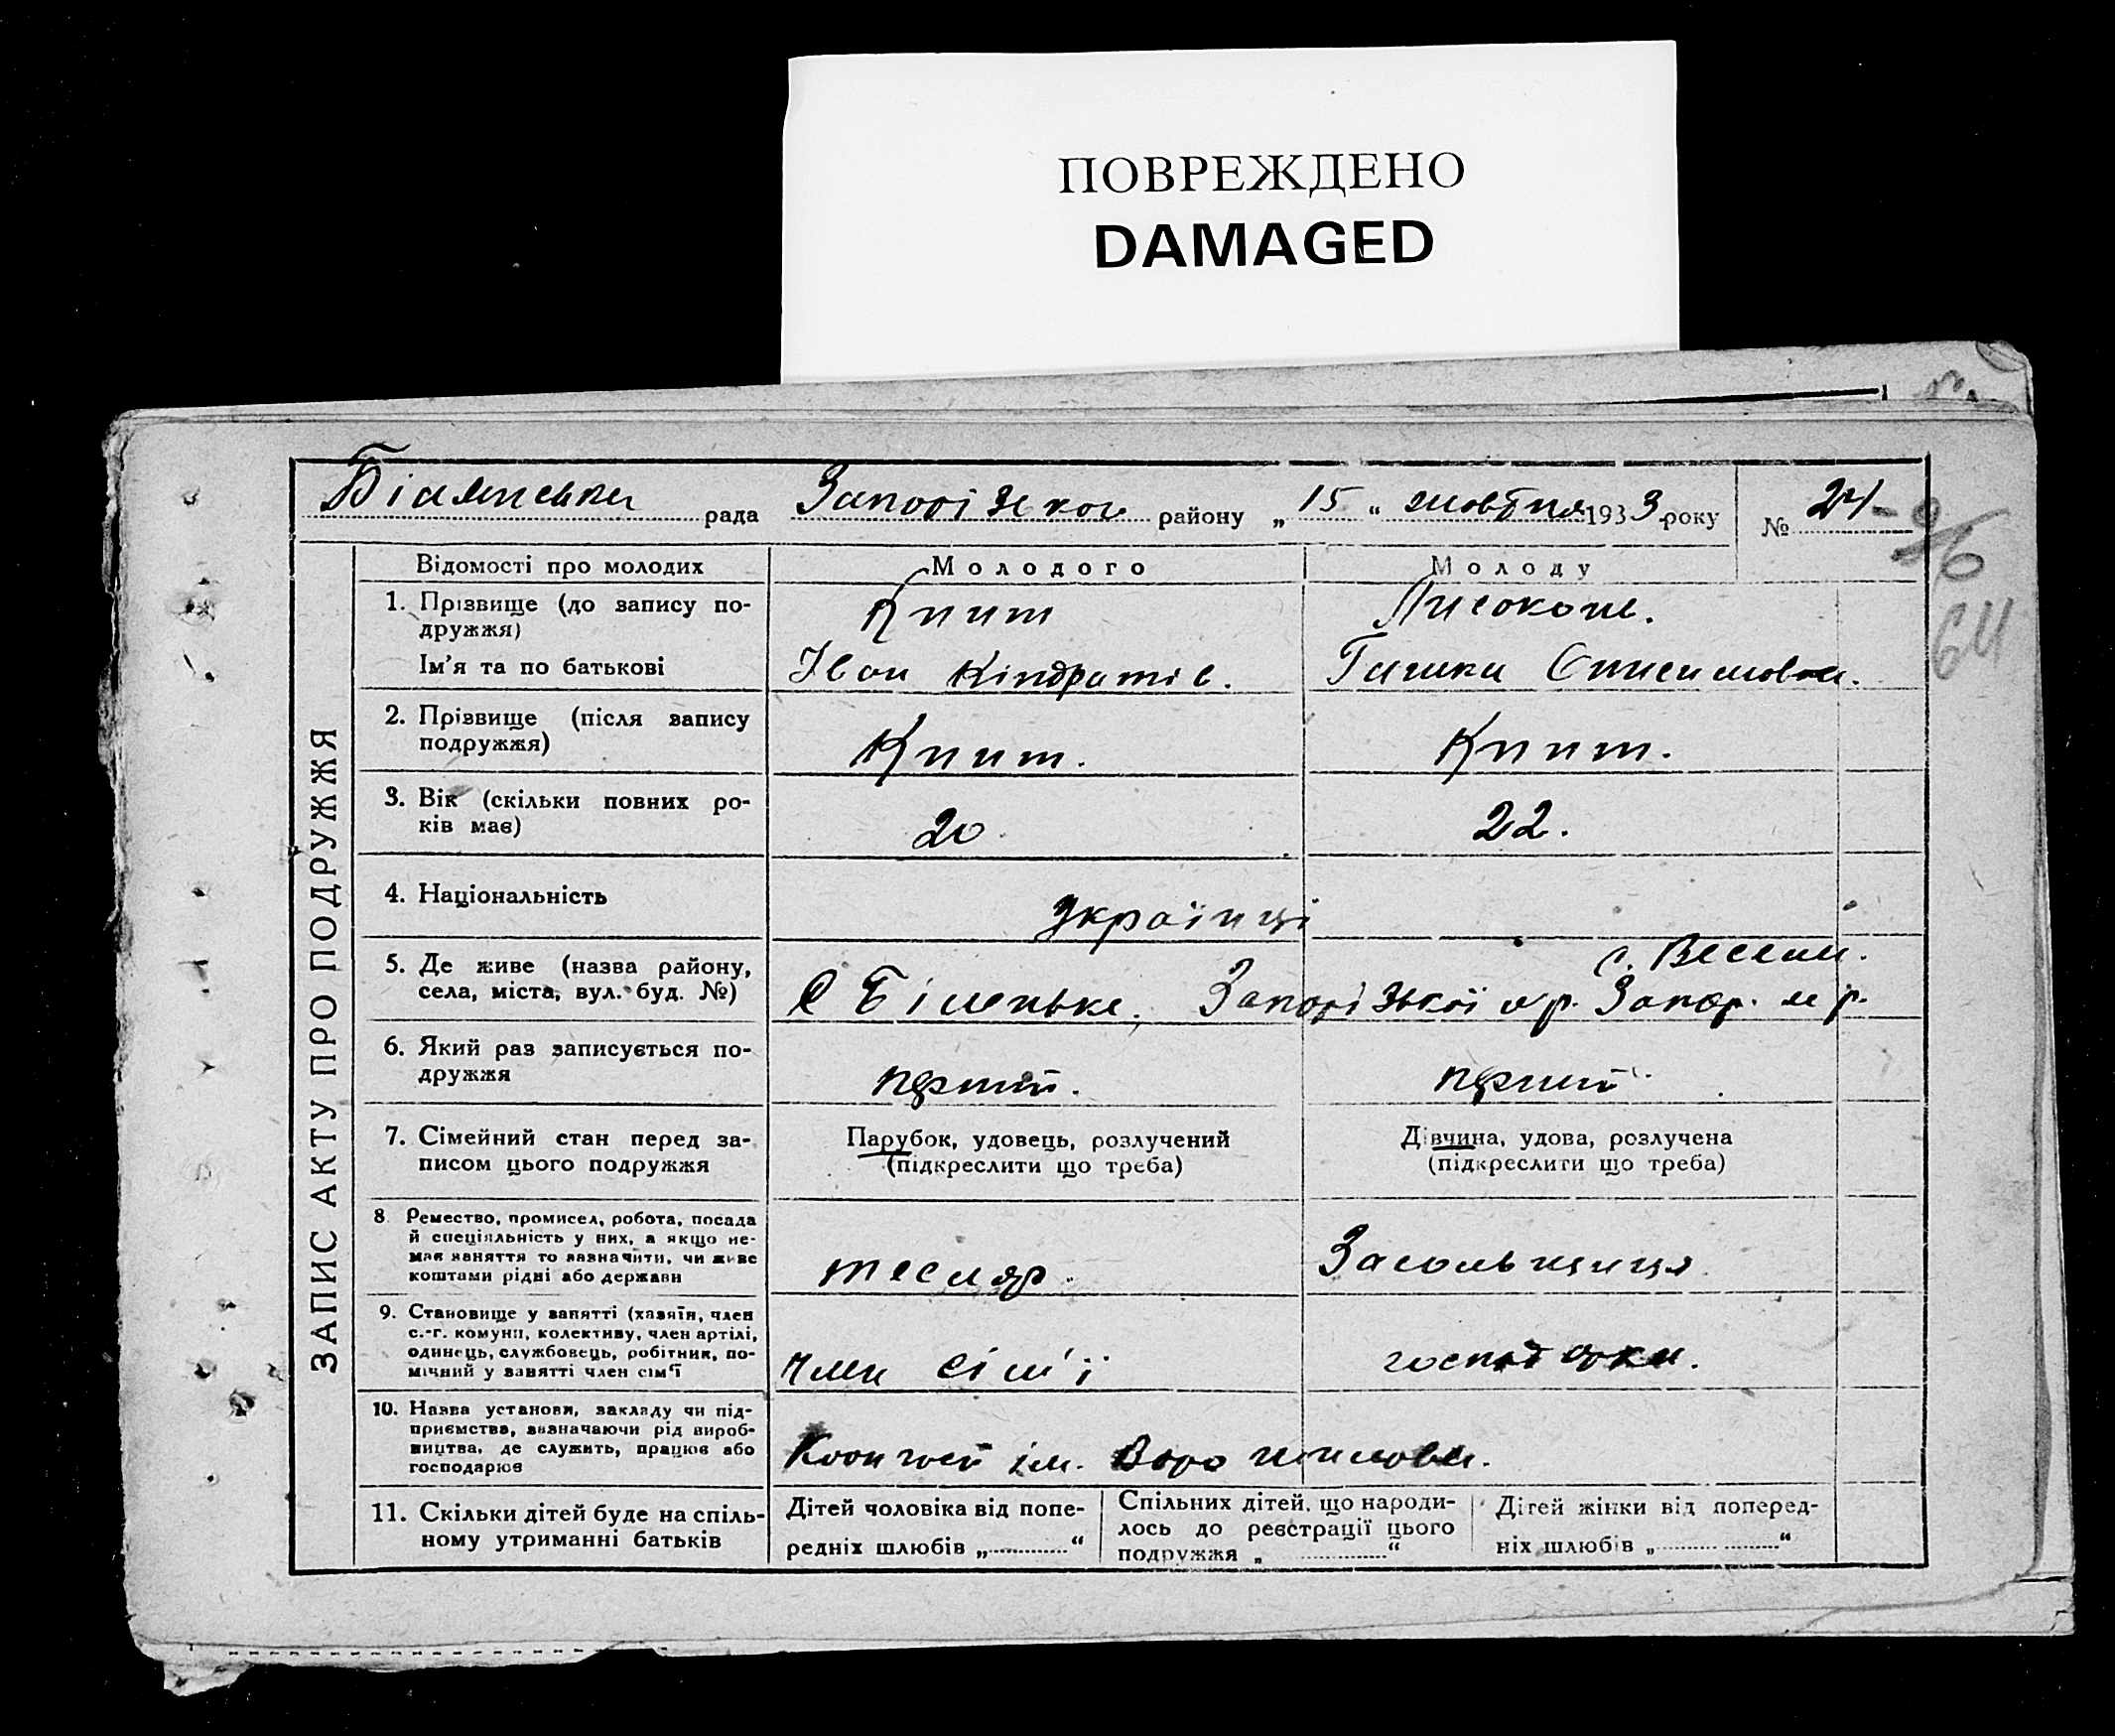 ПОВРЕЖДЕНО
DAMAGED
рада Запорізького району „ 15 “ жовтня 1933 року № 24
ЗАПИС АКТУ ПРО ПОДРУЖЖЯ
Відомості про молодих Молодого Молоду
1. Прізвище (до запису по-
дружжя)
Книт
Ім'я та по батькові Іван Кіндратів.
2. Прізвище (після запису
подружжя)
Книт. Книт.
3. Вік (скільки повних ро-
ків має)
20. 22.
4. Національність Українці
5. Де живе (назва району,
села, міста, вул. буд. №)
с. Веселе.
с Біленьке, Запорізької м р. Запор. м р.
6. Який раз записується по-
дружжя
перший. перший
7. Сімейний стан перед за-
писом цього подружжя
Парубок, удовець, розлучений
(підкреслити що треба)
Дівчина, удова, розлучена
(підкреслити що треба)
8. Ремество, промисел, робота, посада
й спеціяльність у них, а якщо не-
має заняття то зазначити, чи живе
коштами рідні або держави
тесляр.
9. Становище у занятті (хазяїн, член
с.-г. комуни, колективу, член артілі,
одинець, службовець, робітник, по-
мічний у занятті член сім'ї
член сім'ї господарки.
10. Назва установи, закладу чи під-
приємства, зазначаючи рід вироб-
ництва, де служить, працює або
господарює
ім. Ворошилова.
11. Скільки дітей буде на спіль-
ному утриманні батьків
Дітей чоловіка від попе-
редніх шлюбів „ “
Спільних дітей, що народи-
лось до реєстрації цього
подружжя „ “
Дітей жінки від поперед-
ніх шлюбів „ “